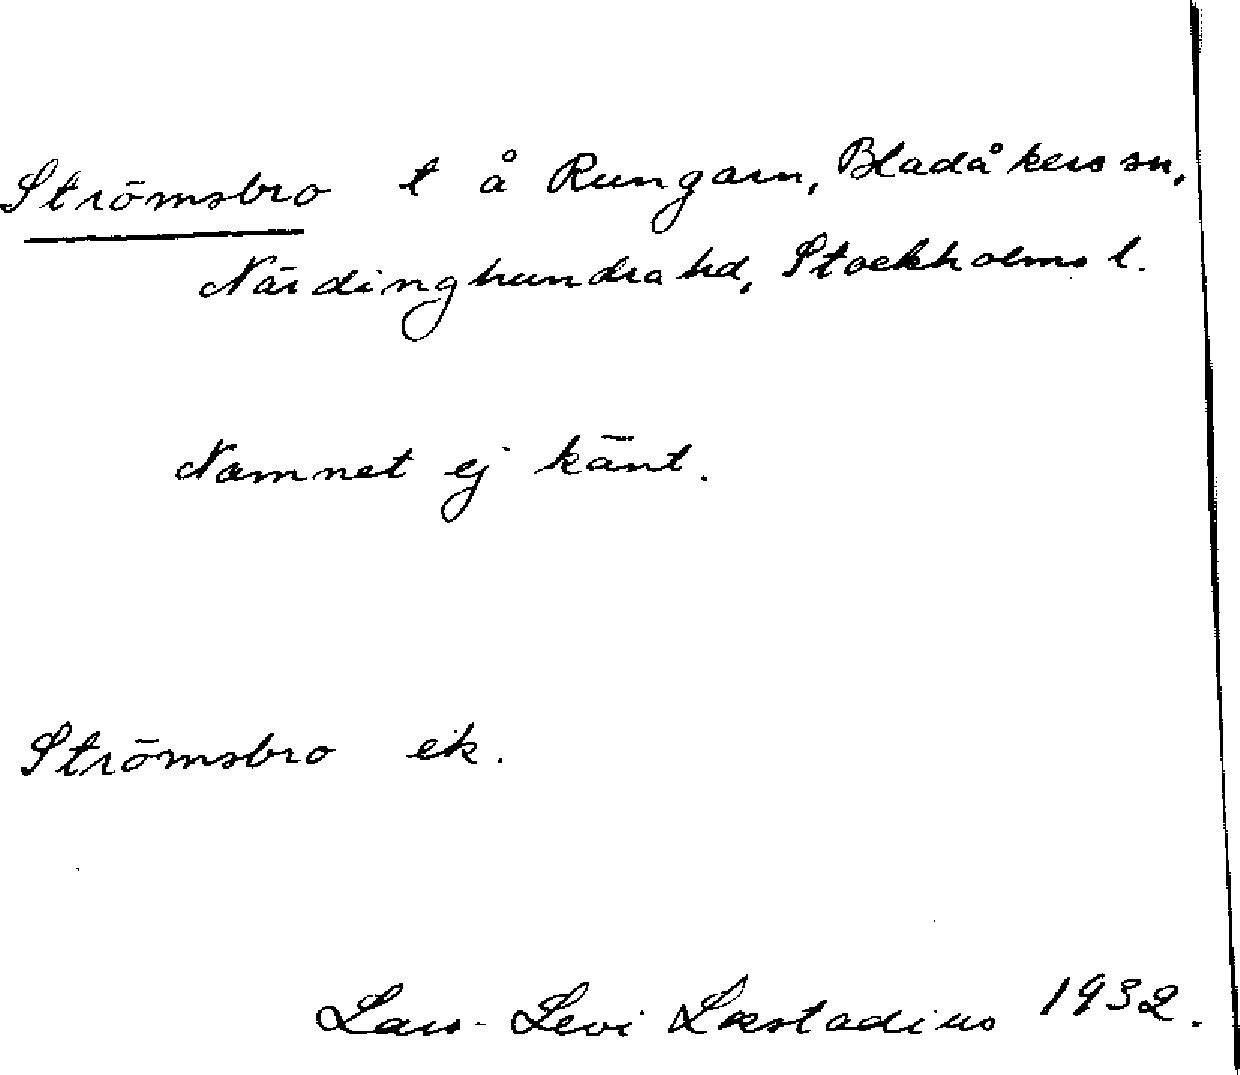 Strömsbro t å Rungarn, Bladåkers sn,
Närdinghundra hd, Stockholms l.
Namnet ej känt.
Strömsbro ek.
Lars-Levi Læstadius 1932.